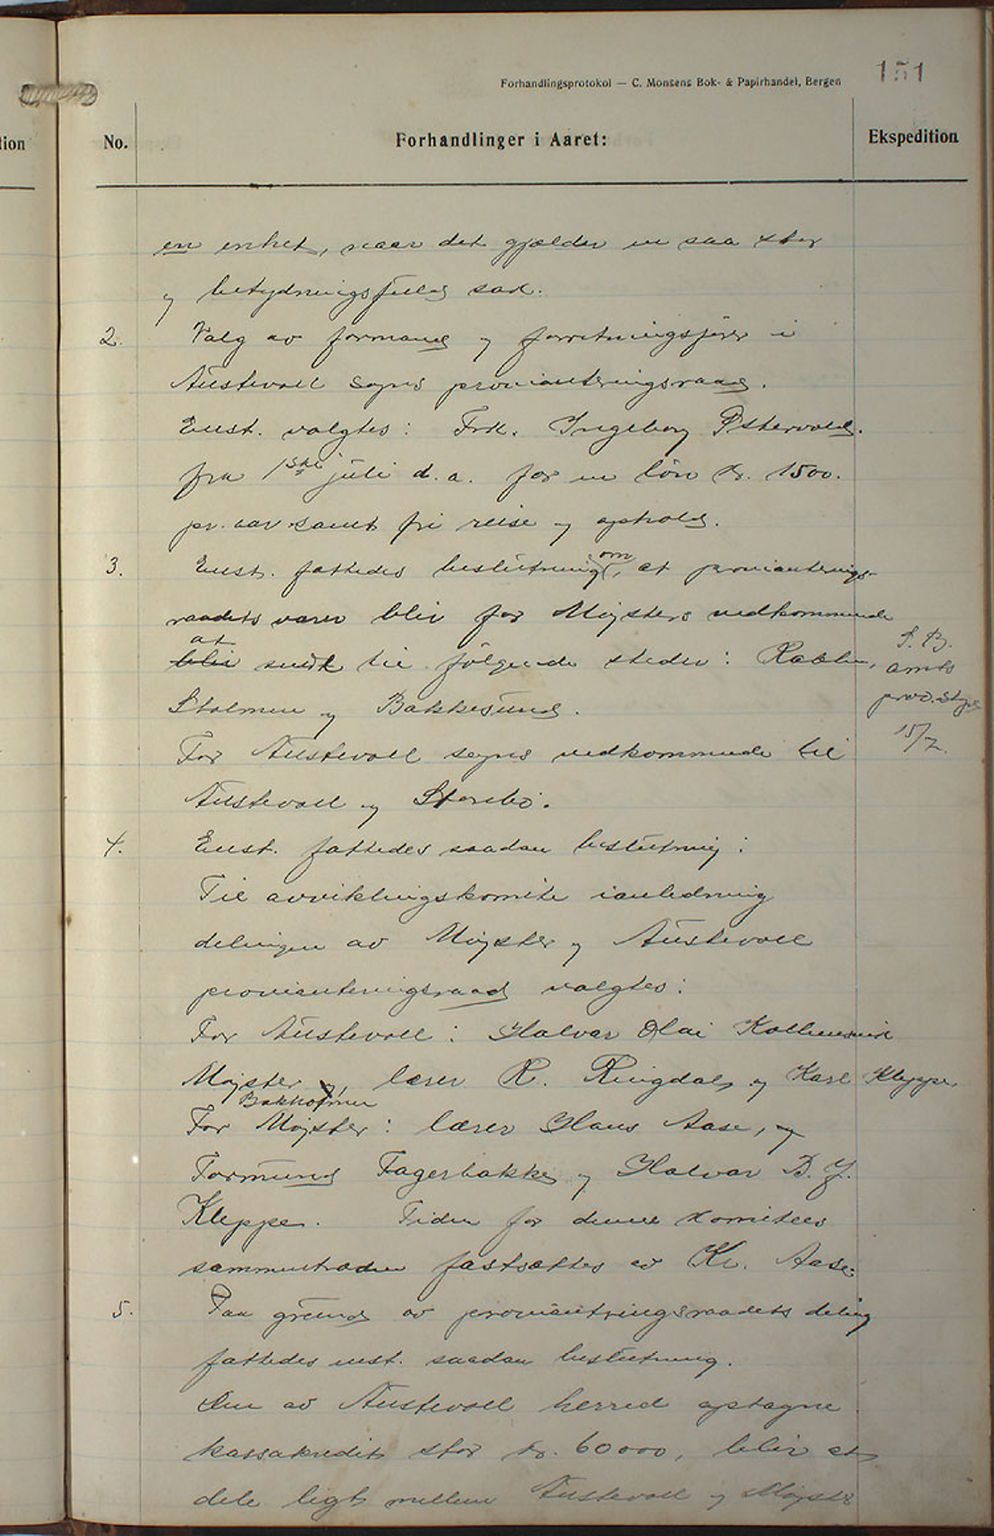 151
Forhandlingsprotokol — C. Monsens Bok- & Papirhandel, Bergen
tion
No.
Forhandlinger i Aaret:
Ekspedition
en enhet, naar det gjælder en saa stor
og betydningsfuld sak.
2. Valg av formand og forretningsfører i
Austevoll sogns provianteringsraad.
Enst. valgtes: Frk. Ingeborg Østervold.
fra 1ste juli d.a. for en løn kr. 1500.
pr. aar samt fri reise og ophold.
3. Enst. fattedes beslutning om, at provianterings-
raadets varer blir for Møgsters vedkommende
at
blir sendt til følgende steder: Rabben,
Stolmen og Bakkesund.
For Austevoll sogns vedkommende til
Austevoll og Storebø.
S. B.
amts
prov.styre
15/7.
4. Enst. fattedes saadan beslutning:
Til avviklingskomite i anledning
delingen av Møgster og Austevoll
provianteringsraad valgtes:
For Austevoll: Halvar Olai Kolbensvik
Møgster og, lærer R. Ringdal, og Karl Kleppe.
Bakholmen
For Møgster: lærer Hans Aase, og
Tormund Fagerbakke og Halvar B. J.
Kleppe. Tiden for denne komitees
sammentræden fastsættes av Kr. Aase.
5. Paa grund av provianteringsraadets deling
fattedes enst. saadan beslutning.
Den av Austevoll herred optagne
kassakredit stor kr. 60000, blir at
dele ligt mellem Austevoll og Møgster